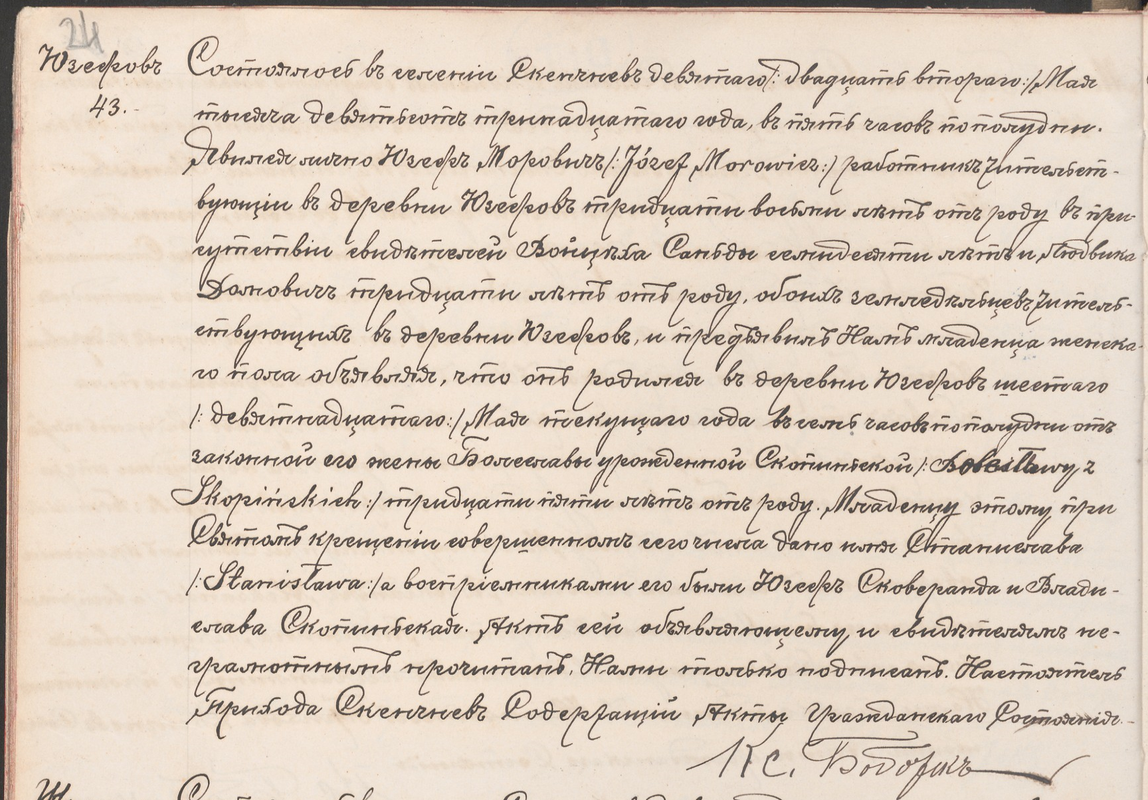 24
Юзефовъ
43.
Состоялось въ селеніи Скенчневъ девятаго /: двадцать втораго :/ Мая
тысяча девятьсотъ тринадцатаго года, въ пять часовъ пополудни.
Явился лично Юзефъ Моровичъ /: Józef Morowicz :/ работникъ жительст-
вующій въ деревни Юзефовъ тридцати восьми лѣтъ отъ роду въ при-
сутствіи свидѣтелей Войцѣха Саньды семидесяти лѣтъ и Людвика
Домовичъ тридцати лѣтъ отъ роду, обоихъ земледѣльцевъ житель-
ствующихъ въ деревни Юзефовъ, и предъявилъ Намъ младенца женска-
го пола объявляя, что онъ родился въ деревни Юзефовъ шестаго
/: девятнадцатаго :/ Мая текущаго года въ семь часовъ пополудни отъ
законной его жены Болеславы урожденной Скопинской /: Bolesławy z
Skopińskich :/ тридцати пяти лѣтъ отъ роду. Младенцу этому при
Святомъ крещеніи совершенномъ сего числа дано имя Станислава
/: Stanisława :/ а воспріемниками его были Юзефъ Сковеранда и Влади-
слава Скопинская. Актъ сей объявляющему и свидѣтелямъ не-
грамотнымъ прочитанъ, Нами только подписанъ. Настоятель
Прихода Скенчневъ Содержащій Акты Гражданскаго Состоянія.
Кс.